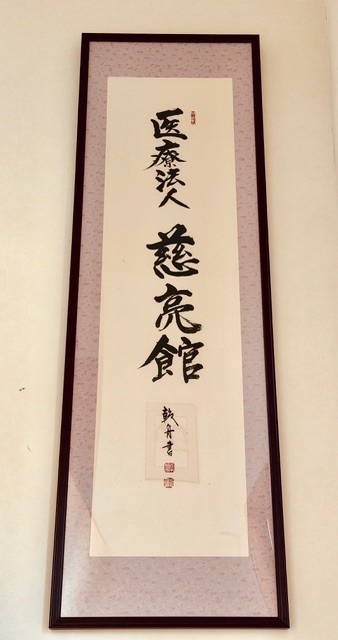 医療法人 慈亮館
乾舟書